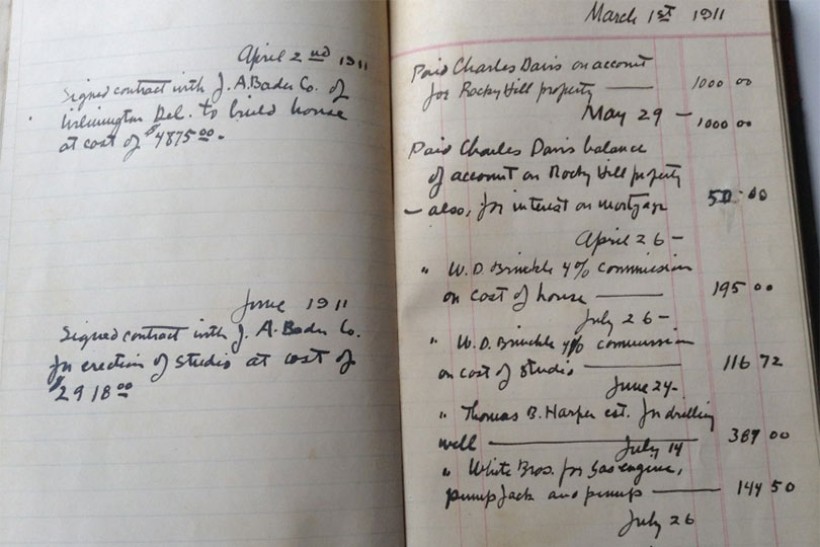 April 2nd 1911
Signed contract with J. A. Bader Co. of
Wilmington Del. to build house
at cost of $4875.00.
June 1911
Signed contract with J. A. Bader Co.
for erection of studio at cost of
$2918.00
March 1st 1911
Paid Charles Davis on account
for Rocky Hill property — 1000 00
May 29 — 1000 00
Paid Charles Davis balance
of account on Rocky Hill property
— also, for interest on mortgage 50.00
April 26 —
" W. D. Brinckle 4% commission
on cost of house — 195 00
July 26 —
" W. D. Brinckle 4% commission
on cost of studio — 116 72
June 24 -
" Thomas B. Harper est. for drilling
well — 389 00
July 14
" White Bros. for Gas engine,
pump jack and pump — 144 50
July 26